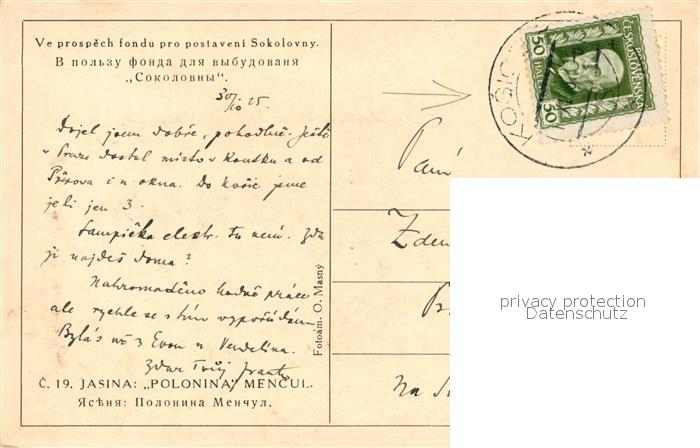 Ve prospěch fondu pro postavení Sokolovny.
В пользу фонда для выбудованя
„Соколовны“.
30/10 25.
Dojel jsem dobře, pohodlně. Ještě
v Praze dostal místo v koutku a od
Přerova i u okna. Do Košic jsme
jeli jen 3.
Lampička elektr. tu není. Zda
ji najdeš doma?
Nahromaděno hodně práce
ale rychle se s tím vypořádám.
Byla's už s Evou u Vendelína.
Zdar Tvůj
Č. 19. JASINA: „POLONINA“ MENČUL.
Ясѣня: Полонина Менчул.
Fotoam. O. Masný
KOŠIC
50
HAL
ČESKOSLOVENSKÁ
50
Paní
Zden
Na
privacy protection
Datenschutz